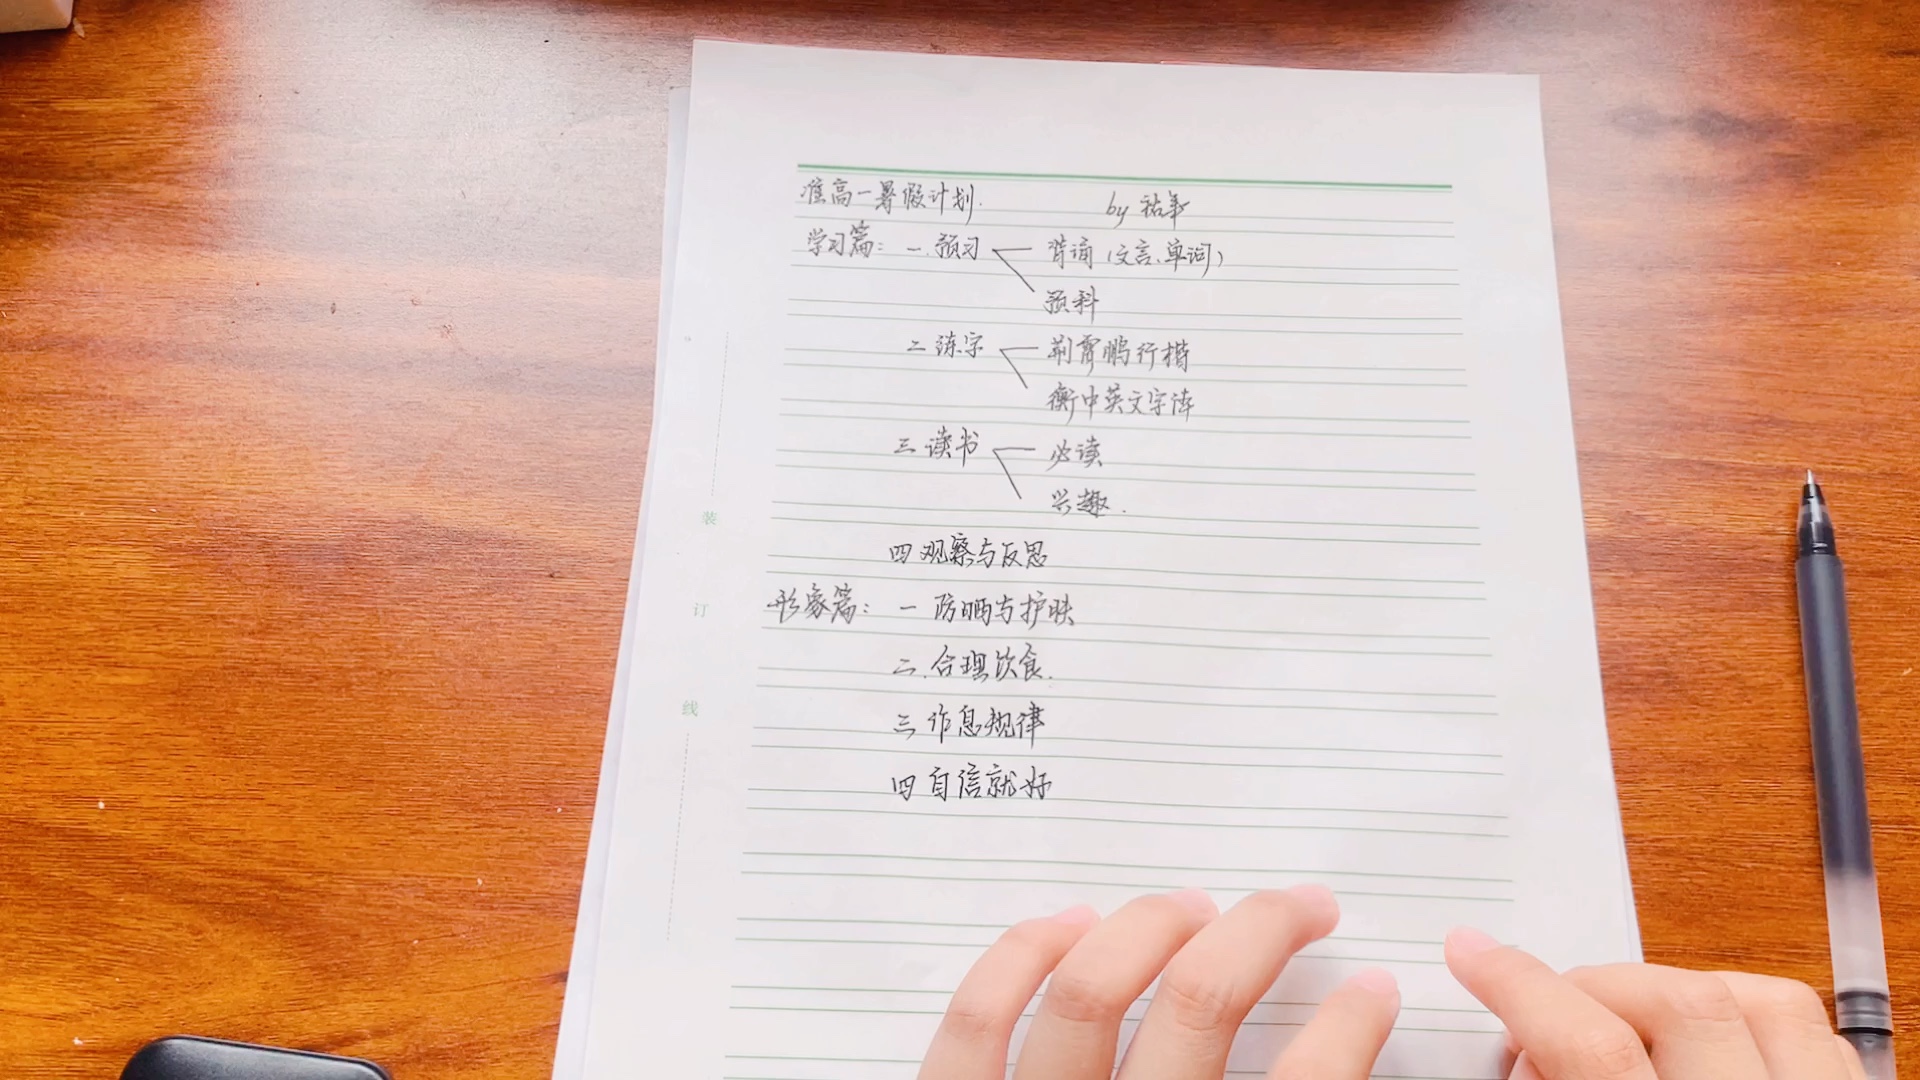 准高一暑假计划. by 祐年
学习篇: 一.预习 背诵(文言、单词)
预科
二 练字 荆霄鹏行楷
衡中英文字体
三 读书 必读
兴趣.
四 观察与反思
形象篇: 一 防晒与护肤
二.合理饮食.
三 作息规律
四 自信就好
装
订
线